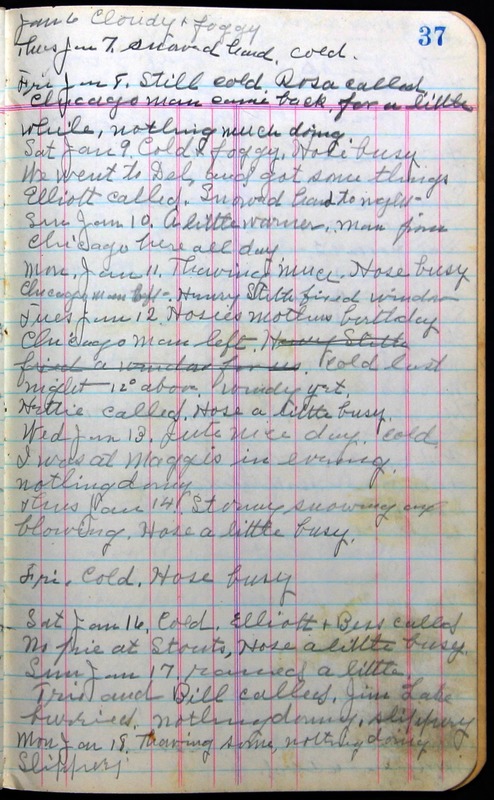 37
Jan 6 Cloudy + foggy
Thurs Jan 7. snowed hard, cold.
Fri Jan 8. Still cold. Rosa called
Chicago man came back, for a little
while, nothing much doing
Sat Jan 9. Cold + foggy. Hose busy
We went to Del, and got some things
Elliott called. Snowed hard to night
Sun Jan 10. A little warmer, man from
Chicago here all day
Mon, Jan 11. Thawing much. Hose busy
Chicago man left. Henry Stith fixed window
Tues Jan 12. Hosies mothers birthday
Chicago man left. Henry Stith
fixed a window for us. Cold last
night 12° above, yet.
Hattie called. Hose a little busy.
Wed Jan 13. nice day, cold
I was at Maggis in evening.
nothing doing
Thurs Jan 14. Stormy snowing and
blowing. Hose a little busy.
Fri, Cold, Hose busy
Sat Jan 16, Cold. Elliott + Bess called
No pie at Stouts, Hose a little busy.
Sun Jan 17, rained a little,
and Bill called, Jim Lake
burried. nothing doing, slippery
Mon Jan 18. Thawing some, nothing doing
Slippery